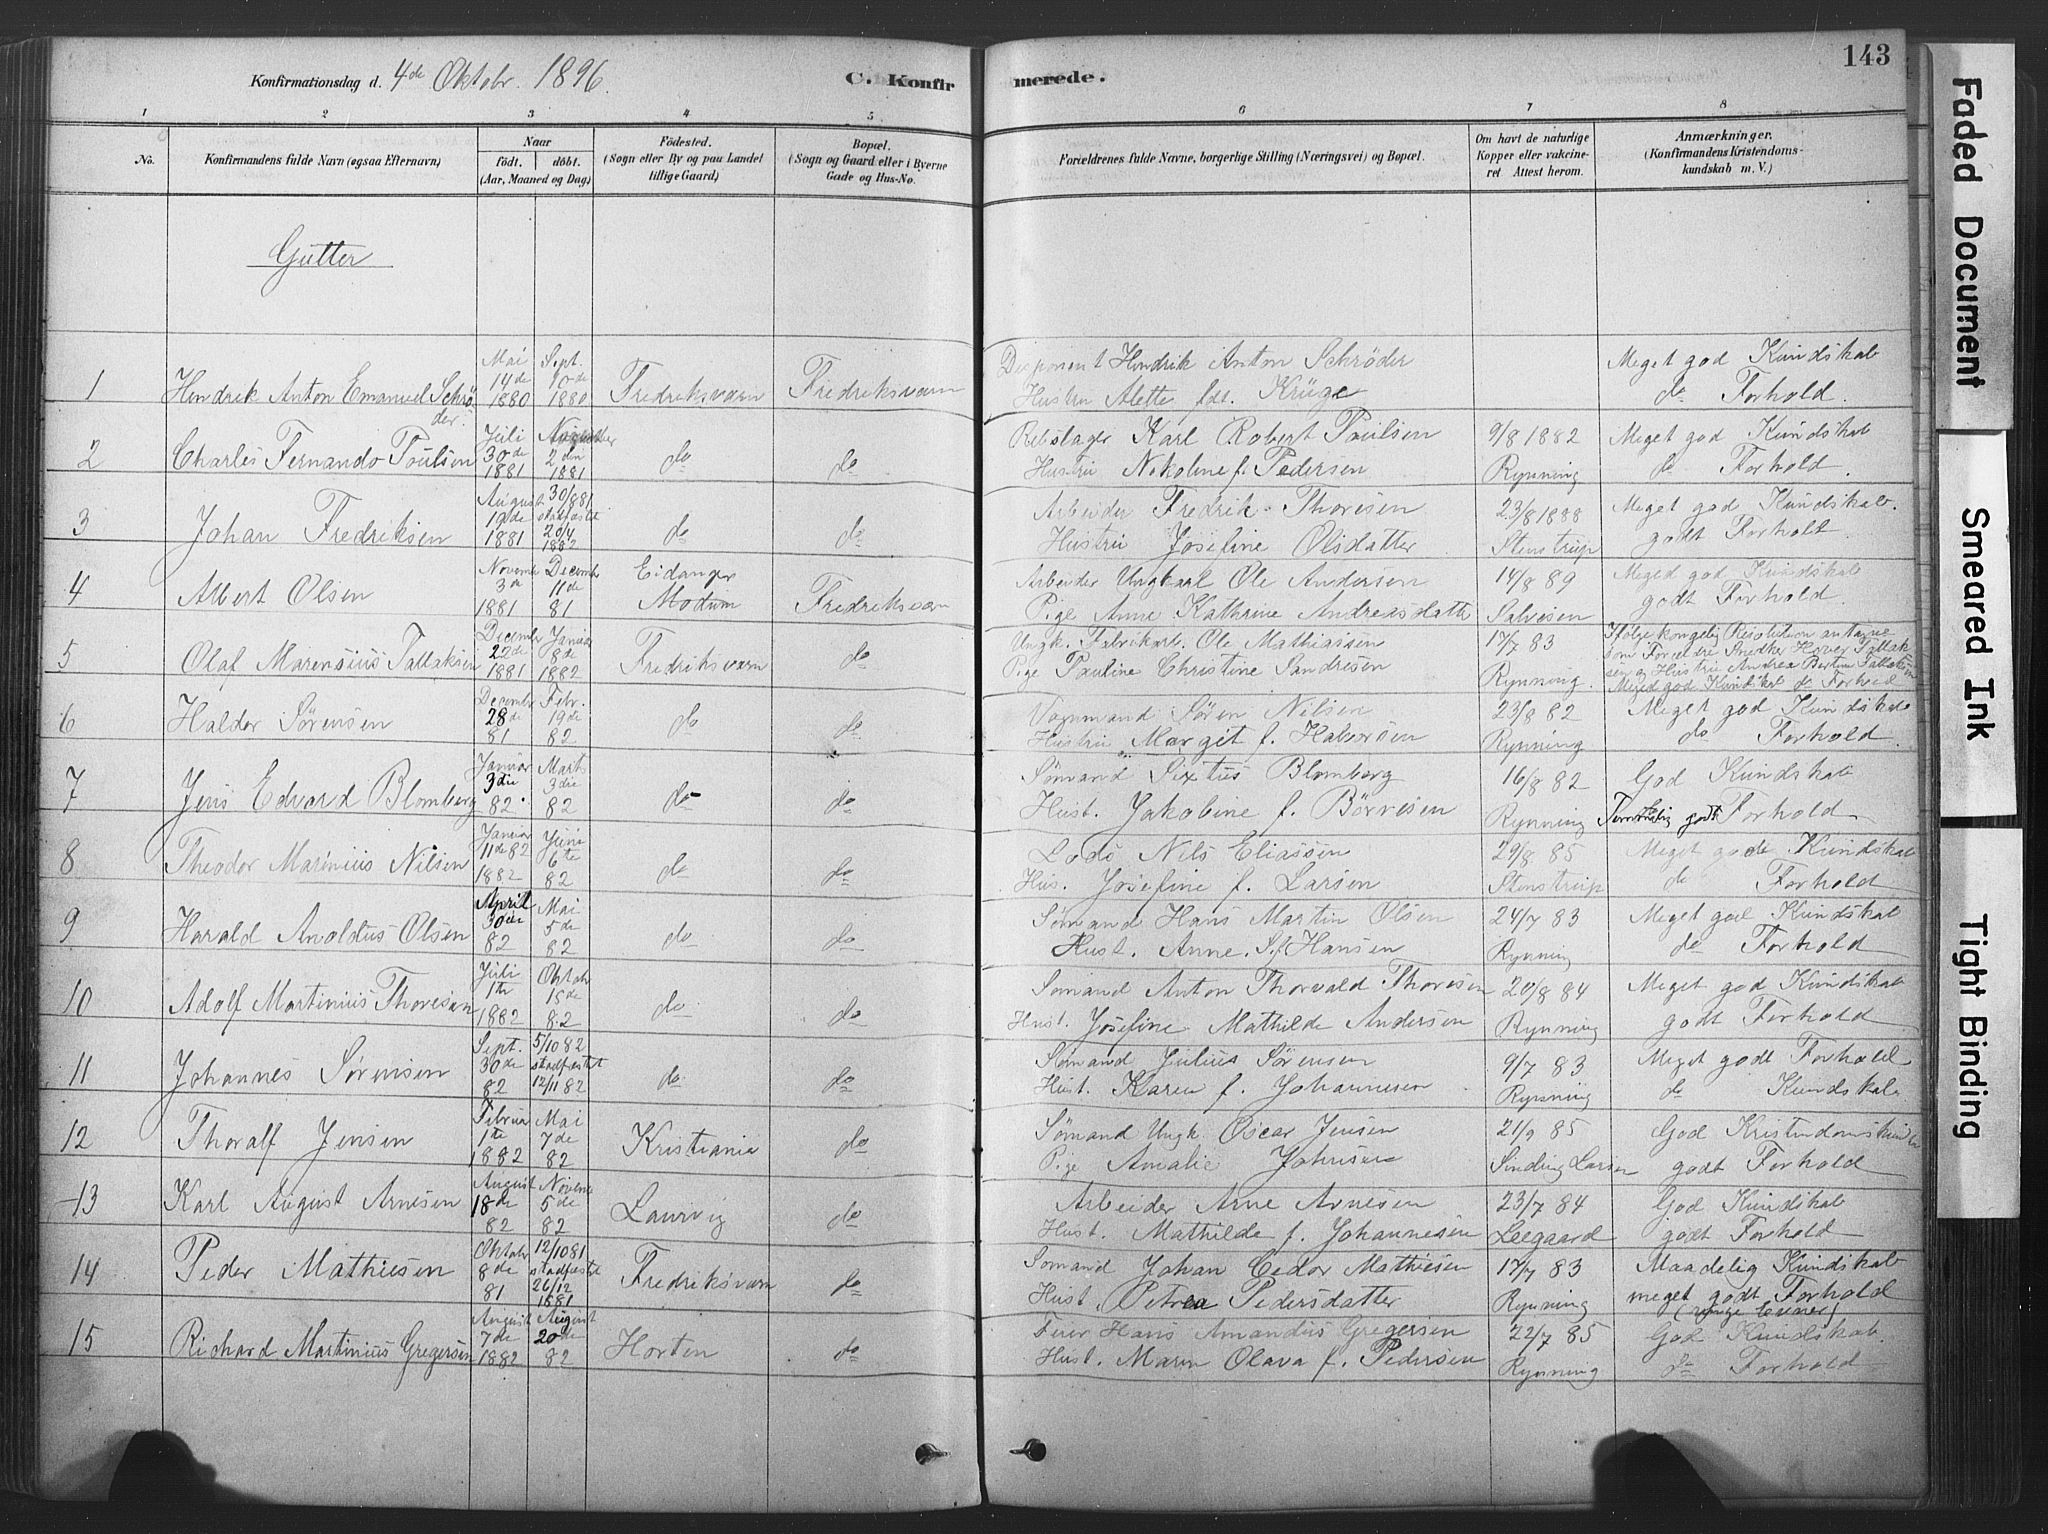 Konfirmationsdag d. 4de Oktobr. 1896.
C. Konfirmerede.
143
1 2 3 4 5 6 7 8
No.
Konfirmandens fulde Navn (ogsaa Efternavn)
Naar
födt. döbt.
(Aar, Maaned og Dag)
Födested.
(Sogn eller By og paa Landet
tillige Gaard)
Bopæl.
(Sogn og Gaard eller i Byerne
Gade og Hus-No.
Forældrenes fulde Navne, borgerlige Stilling (Næringsvei) og Bopæl.
Om havt de naturlige
Kopper eller vakcine-
ret Attest herom.
Anmærkninger.
(Konfirmandens Kristendoms-
kundskab m. V.)
Gutter
1 Hendrik Anton Emanuel Schrö
der.
Mai 14de 1880
Sept. 10de 1880
Fredriksværn
Fredriksværn
Disponent Hendrik Anton Schröder
Hustru Alette fdt. Krüge
Meget god Kundskab
do Forhold.
2 Charles Fernando Poulsen
Juli 30de 1881
2den 1881
do
do
Rebslager Karl Robert Poulsen
Hustru Nikoline f. Pedersen
9/8 1882
Rynning
Meget god Kundskab
do Forhold.
3 Johan Fredriksen
August 19de 1881
30/8 81 stadfæstet 20/4 1882
do
do
Arbeider Fredrik Thoresen
Hustru Josefine Olsdatter
23/8 1888
Stenstrup
Meget god Kundskab.
godt Forholt.
4 Albert Olsen
Novemb 3de 1881
Decemb 11de 81
Eidanger
Modum
Fredriksværn
Arbeider Ungkaal Ole Andersen
Pige Anne Kathrine Andreasdatte
14/8 89
Salvesen
Meged god Kundskab
godt Forhold.
5 Olaf Marensius Tallaksen
Decemb 22de 1881
Januar 8de 1882
Fredriksværn
do
Ungk. Fabrikarb. Ole Mathiassen
Pige Pauline Christine Sandresen
17/7 83
Rynning.
Ifølge kongelig Resolution antagne
som Forældre Snedker Haver Tallak
sen og Hustru Andrea Bertine Tallaksen
Meged god Kundskab do Forhold
6 Haldor Sørensen
Decemb 28de 81
Febr. 19de 82
do
do
Vognmand Søren Nilsen
Hustru Margit f. Halvorsen
23/8 82
Rynning
Meget god Kundskab
do Forhold.
7 Jens Edvard Blomberg
Januar 3die 82.
Marts 3die 82
do
do
Sømand Sixtus Blomberg
Hust. Jakobine f. Børresen
16/8 82
Rynning
God Kundskab
Temmelig godt Forhold
8 Theodor Marinius Nilsen
Januar 11de 82 1882
Juni 6te 82
do
do
Lods Nils Eliassen
Hus. Josefine f. Larsen
29/8 85
Stenstrup
Meget gode Kundskab
do Forhold
9 Harald Anoldus Olsen
April 30de 82
Mai 5de 82
do
do
Sømand Hans Martin Olsen
Hust. Anne. S. f Hansen
24/7 83
Rynning
Meget god Kundskab
do Forhold
10 Adolf Martinius Thoresen
Juli 1te 1882
Oktobr 15de 82
do
do
Sømand Anton Thorvald Thoresen
Hust. Josefine Mathilde Andersen
20/8 84
Rynning
Meget god Kundskab
godt Forhold
11 Johannes Sørensen
Sept. 30de 82
5/10 82 stadfæstet 12/11 82
do
do
Sømand Julius Sørensen
Hust. Karen f. Johannesen
9/7 83
Rynning
Meget godt Forhold
do Kundskab
12 Thoralf Jensen
Februar 1te 1882
Mai 7de 82
Kristiania
do
Sømand Ungk. Oscar Jensen
Pige Amalie Johnsen
21/9 85
Sinding Larsen
God Kristendomskundsk
godt Forhold
13 Karl August Arnesen
August 18de 82
Novemb 5de 82
Laurvig
do
Arbeider Arne Arnesen
Hust. Mathilde f. Johannesen
23/7 84
Leegaard
God Kundskab
godt Forhold
14 Peder Mathiesen
Oktobr 8de 81
12/10 81 stadfæstet 26/12 1881
Fredriksværn
do
Sømand Johan Cedor Mathiesen
Hust. Petrea Pedersdatter
17/7 83
Rynning
Maadelig Kundskab
meget godt Forhold
15 Richard Martinius Gregersen
August 7de 1882
August 20de 82
Horten
do
Feier Hans Amandus Gregersen
Hust. Maren Olava f. Pedersen
22/7 85
Rynning
God Kundskab.
do Forhold
Faded Document
Smeared Ink
Tight Binding